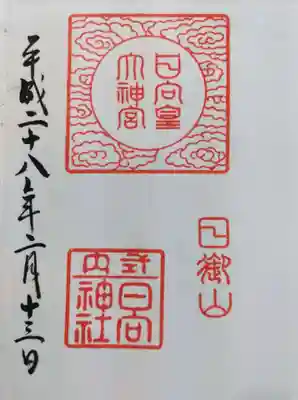 日向皇
大神宮
日御山
式内
日向
神社
平成二十八年二月十三日